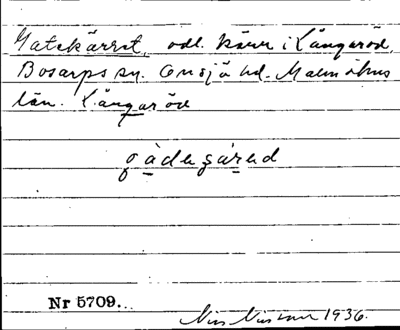 Gatekärret, odl. kärr i Kängaröd,
Bosarps sn. Onsjö hd. Malmöhus
län. Kängaröd
gàdesàred
Nr 5709.
Nils Nilsson 1936.